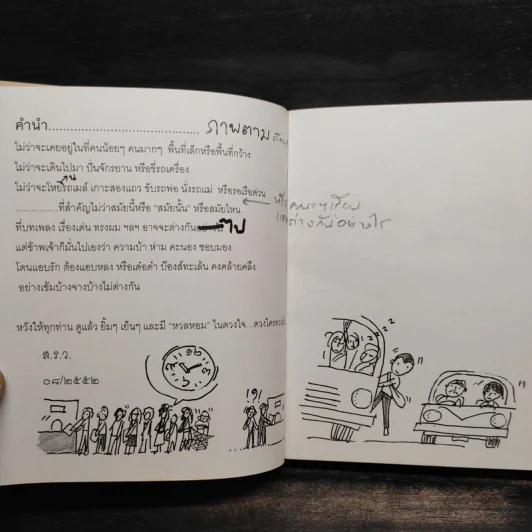 คำนำ.................................... ภาพตาม
ไม่ว่าจะเคยอยู่ในที่คนน้อยๆ คนมากๆ พื้นที่เล็กหรือพื้นที่กว้าง
ไม่ว่าจะเดินไปมา ปั่นจักรยาน หรือขี่รถเครื่อง
ไม่ว่าจะโหยรถเมล์ เกาะสองแถว ขับรถพ่อ นั่งรถแม่ หรือรอเรือด่วน
................ที่สำคัญไม่ว่าสมัยนี้หรือ "สมัยนั้น" หรือสมัยไหน
ที่บทเพลง เรื่องเด่น ทรงผม ฯลฯ อาจจะต่างกัน ไป
แต่ข้าพเจ้าก็มั่นไปเองว่า ความบ้า ห่าม คะนอง ชอบมอง
โดนแอบรัก ต้องแอบหลง หรือเด๋อด๋า บ๊องส์ทะเล้น คงคล้ายคลึง
อย่างเข้มบ้างจางบ้างไม่ต่างกัน
หวังให้ทุกท่าน ดูแล้ว ยิ้มๆ เย็นๆ และมี "หวลหอม" ในดวงใจ...
ส.ร.ว.
๐๘/๒๕๕๒
ต่างกันอย่างไร
12
!?!
z z z